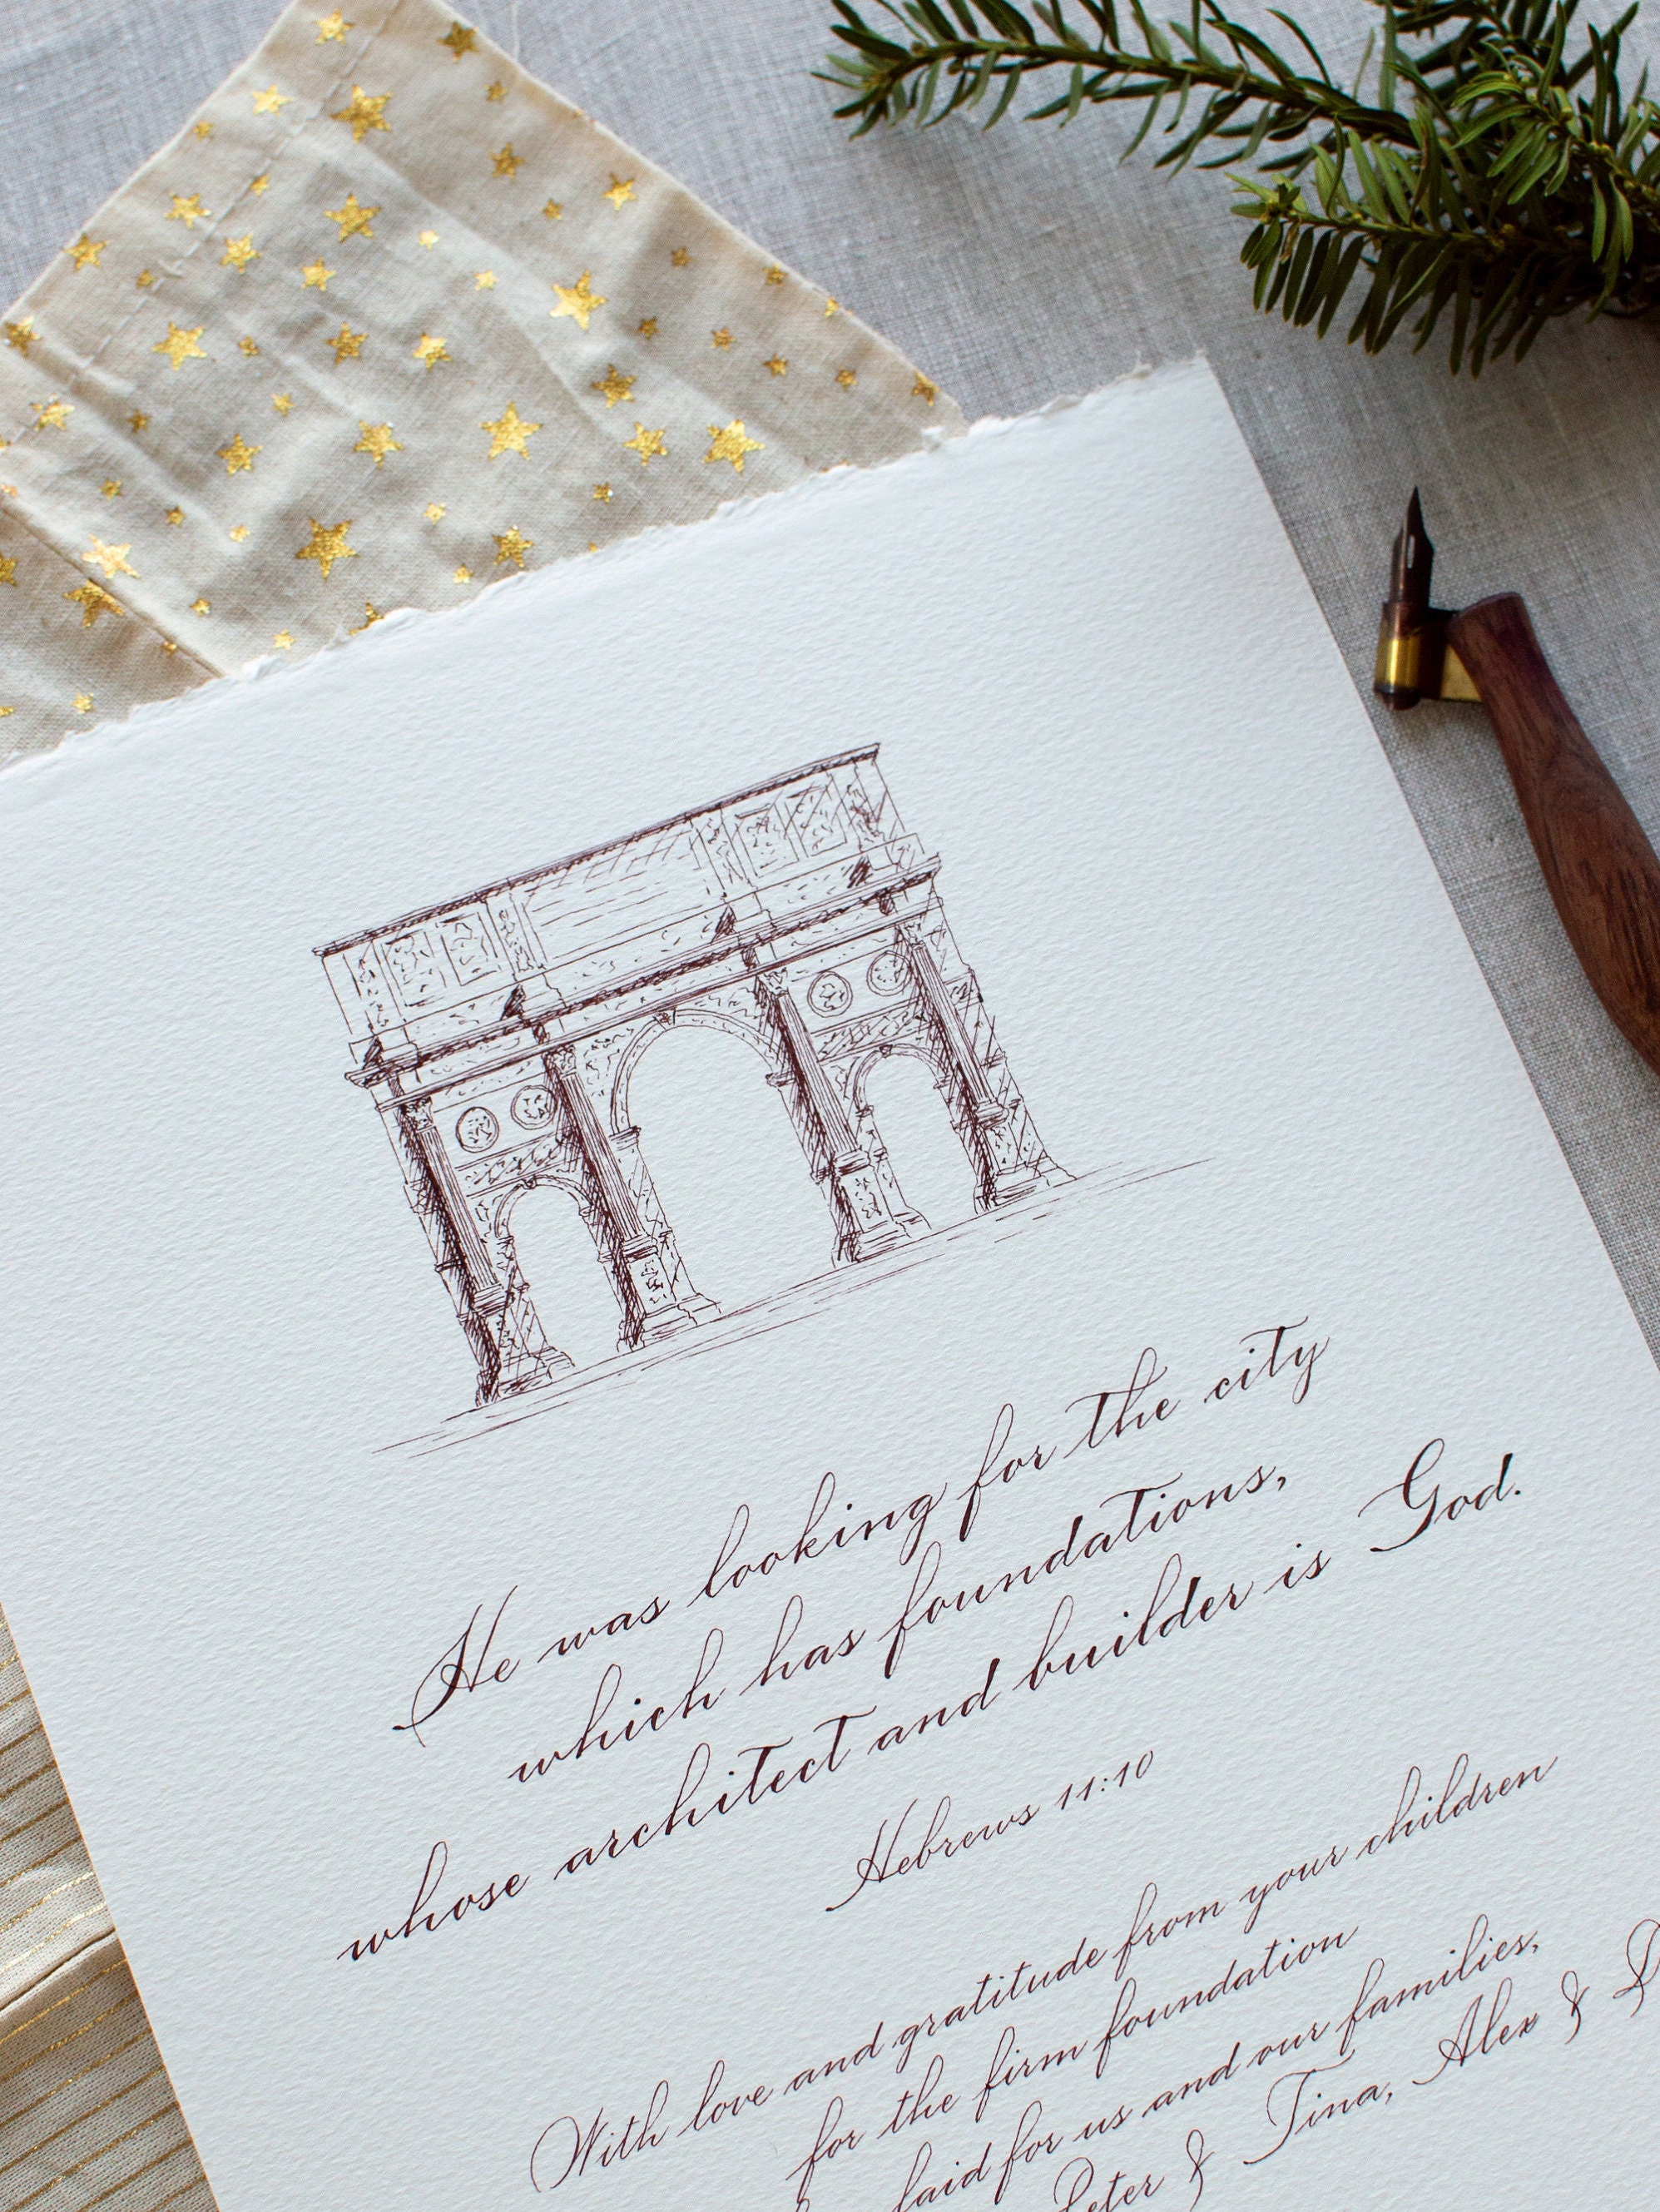 He was looking for the city
which has foundations,
whose architect and builder is God.
Hebrews 11:10
With love and gratitude from your children
for the firm foundation
laid for us and our families,
Peter & Tina, Alex &